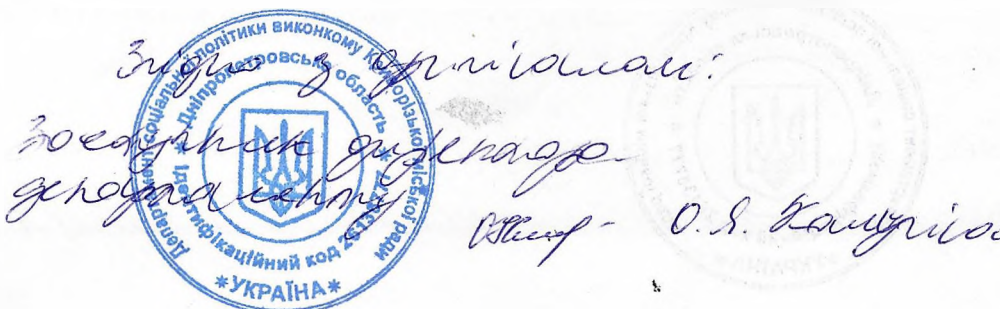 Згідно з оригіналом:
Заступник директора
департаменту
О.Я.
Департамент соціальної політики виконкому Криворізької міської ради
* Дніпропетровська область *
Ідентифікаційний код
*УКРАЇНА*